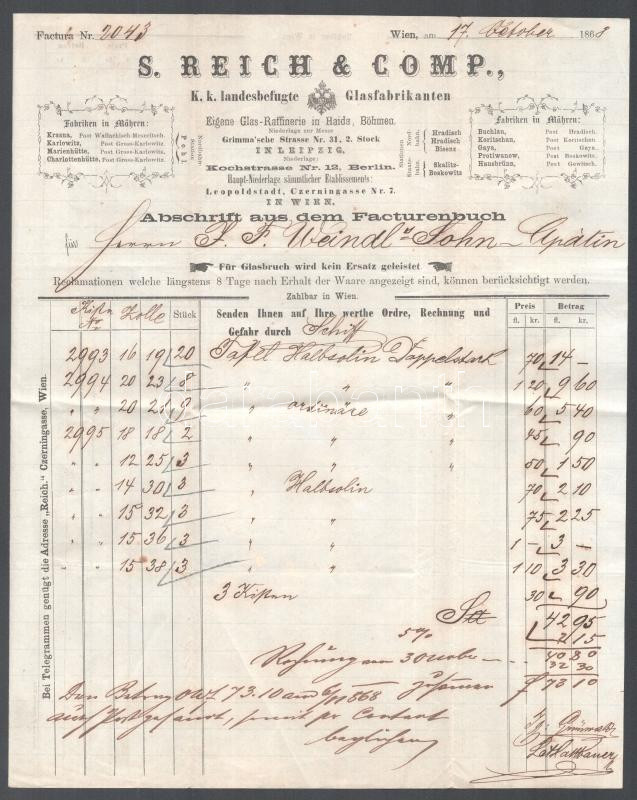 Factura Nr. 2043
Wien, am 17. October 1868
S. REICH & COMP.,
K. k. landesbefugte Glasfabrikanten
Eigene Glas-Raffinerie in Haida, Böhmen.
Niederlage zur Messe
Grimma'sche Strasse Nr. 31, 2. Stock
IN LEIPZIG,
Niederlage:
Kochstrasse Nr. 12, Berlin.
Haupt-Niederlage sämmtlicher Etablissements:
Leopoldstadt, Czerningasse Nr. 7.
IN WIEN.
Fabriken in Mähren:
Krasna, Post Wallachisch-Meseritsch.
Karlowitz, Post Gross-Karlowitz.
Marienhütte, Post Gross-Karlowitz.
Charlottenhütte, Post Gross-Karlowitz.
Nordbahn
Station
Pohl
Stationen
Nordbahn.
Hradisch
Hradisch
Bisenz
Staatsbahn.
Skalitz-
Boskowitz
Fabriken in Mähren:
Buchlau, Post Hradisch.
Koritschan, Post Koritschan.
Gaya, Post Gaya.
Protiwanow, Post Boskowitz.
Hausbrünn, Post Gewitsch.
Abschrift aus dem Facturenbuch
für Herrn J. F. Weindl u Sohn - Apatin
Für Glasbruch wird kein Ersatz geleistet
Reclamationen welche längstens 8 Tage nach Erhalt der Waare angezeigt sind, können berücksichtigt werden.
Zahlbar in Wien.
Kisten Nr Zolle Stück
Senden Ihnen auf Ihre werthe Ordre, Rechnung und
Gefahr durch Schiff
Preis Betrag
fl. kr. fl. kr.
2993 16 19 20 Tafel Halbsolin Doppelstark 70 14 -
2994 20 23 8 " " " 1 20 9 60
" " 20 21 9 " ordinäre " 60 5 40
2995 18 18 2 " " " 45 90
" " 12 25 3 " " " 50 1 50
" 14 30 3 " Halbsolin 70 2 10
" 15 32 3 " " 75 2 25
" 15 36 3 " " 1 - 3 -
" 15 38 3 " " 1 10 3 30
3 Kisten 30 90
42 95
5% 2 15
40 80
30 32 30
zusamen f 73 10
Den Betrag 73.10 am 868
Bei Telegrammen genügt die Adresse „Reich." Czerningasse, Wien.